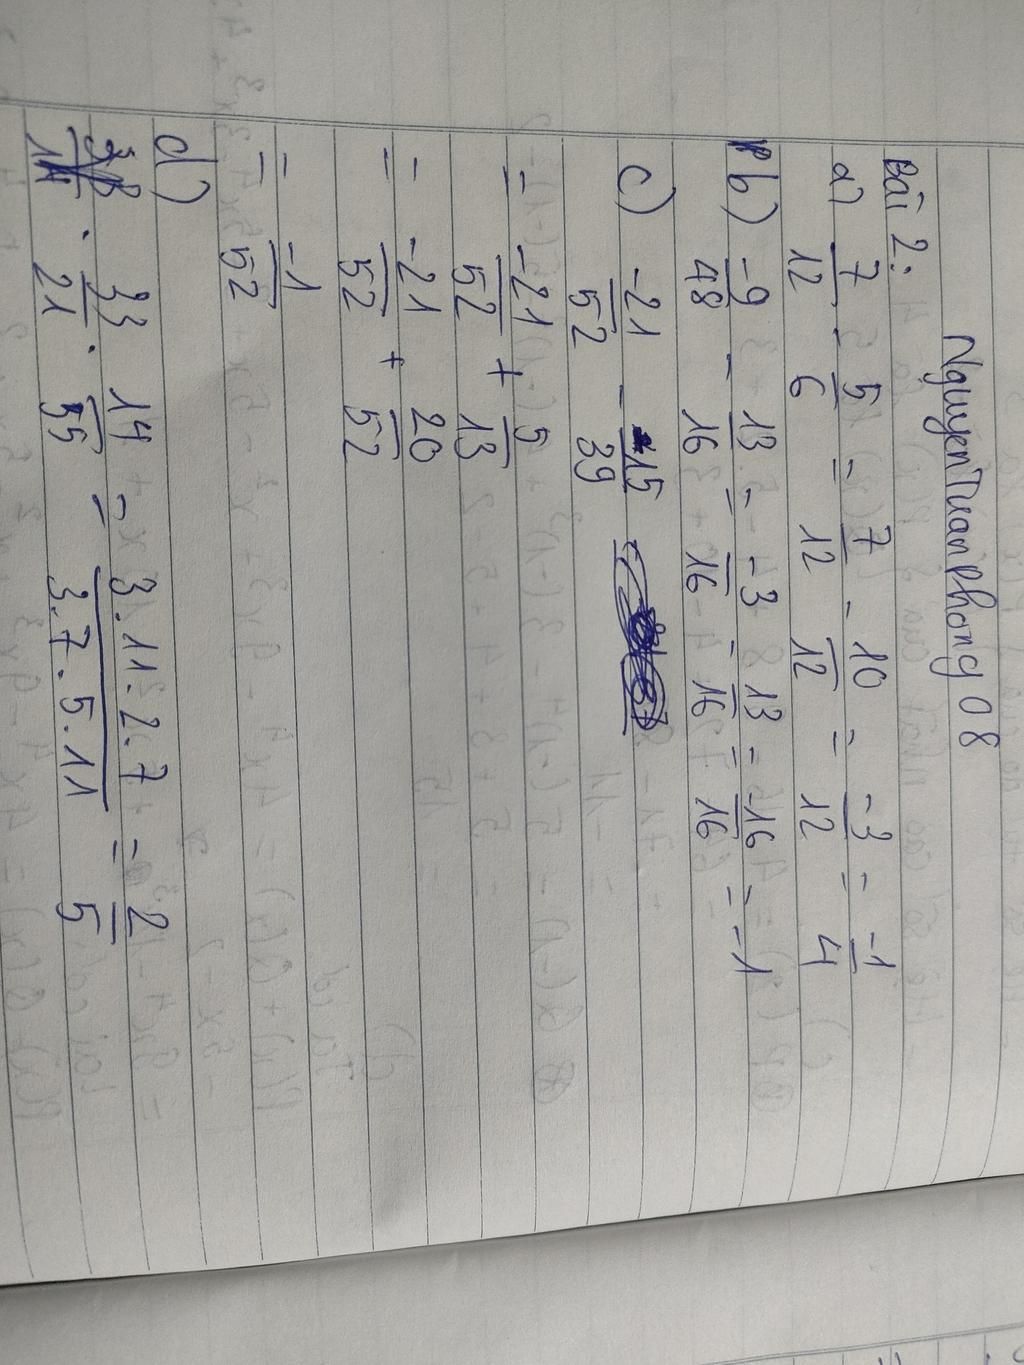 Nguyen Tuan Phong 08
Bài 2:
a) 7/12 - 5/6 = 7/12 - 10/12 = -3/12 = -1/4
b) -9/48 - 13/16 = -3/16 - 13/16 = -16/16 = -1
c) -21/52 - -15/39
= -21/52 + 5/13
= -21/52 + 20/52
= -1/52
d)
33/21 . 14/55 = 3.11.2.7/3.7.5.11 = 2/5